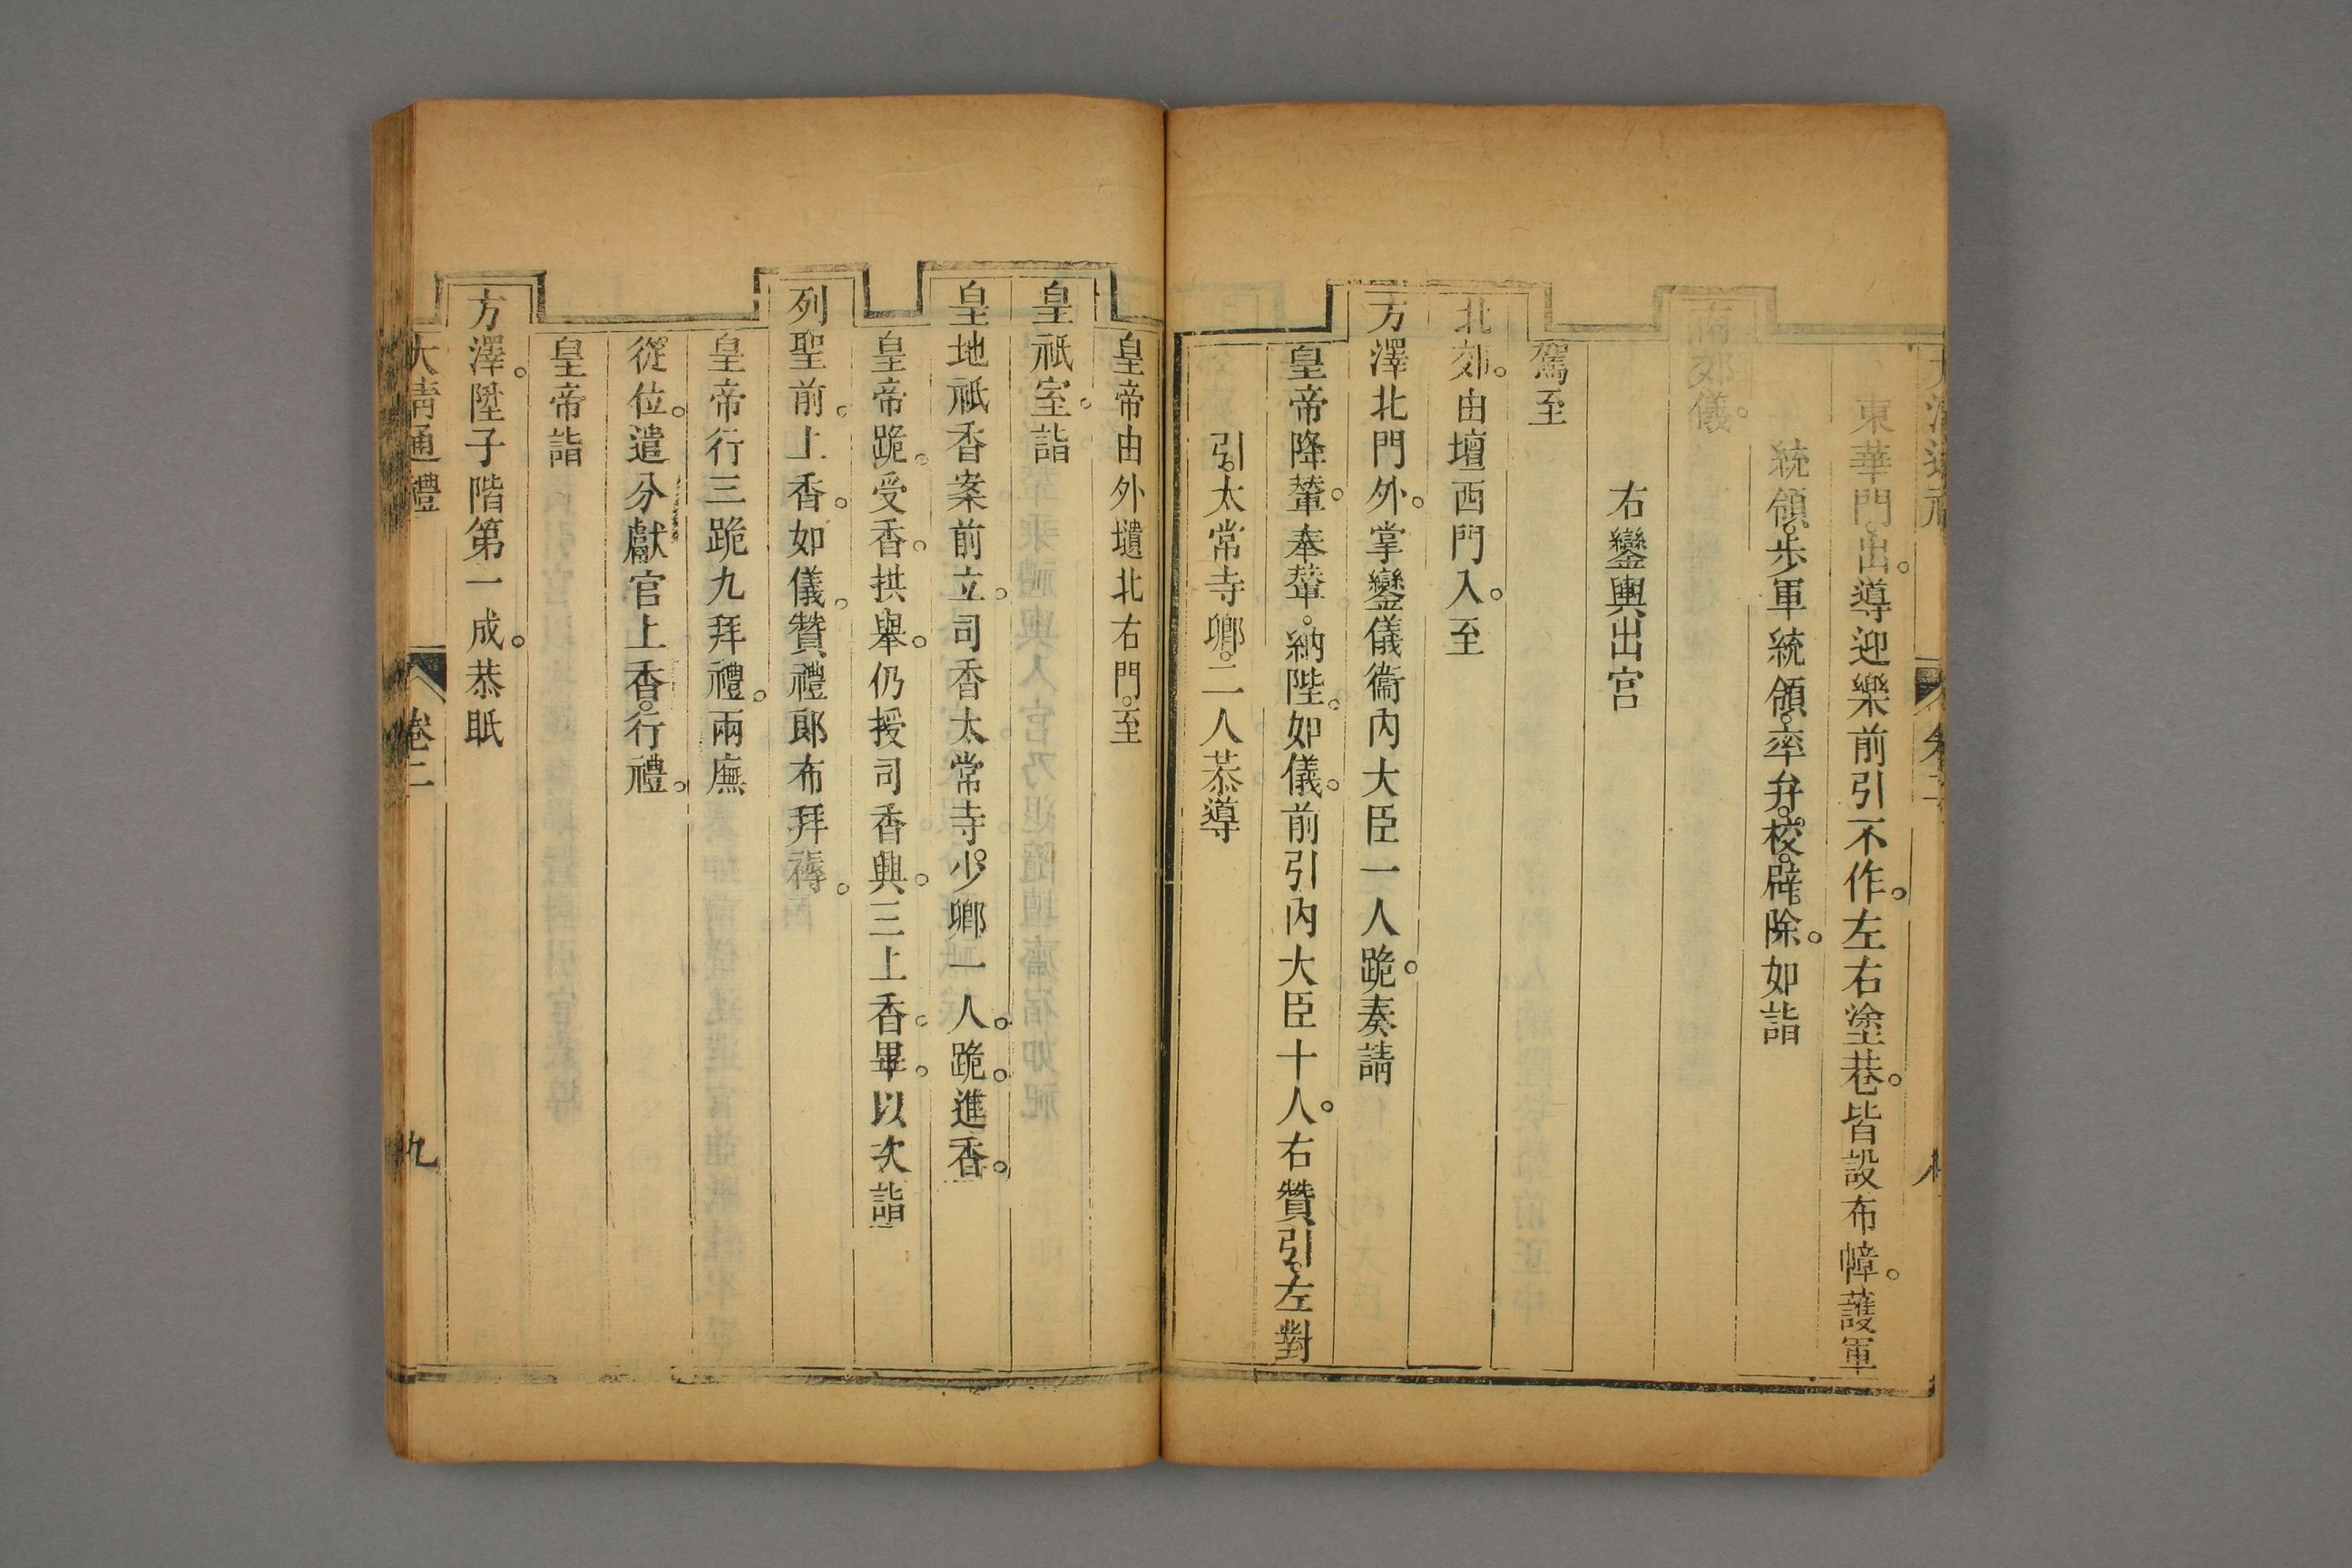 東華門。出。導迎樂前引不作。左右塗巷。皆設布幛。護軍
統領。步軍統領。率弁。校。辟。除。如詣
南郊儀。
右鑾輿出宮
駕至
北郊。由壇西門入。至
方澤北門外。掌鑾儀衞內大臣一人跪。奏請
皇帝降輦。奉輦。納陛。如儀。前引內大臣十人。右贊引。左對
引。太常寺卿。二人恭導
皇帝由外壝北右門。至
皇祇室。詣
皇地祇香案前立。司香太常寺。少卿一人。跪。進香。
皇帝跪。受香。拱舉。仍授司香。興。三上香。畢。以次詣
列聖前。上香。如儀。贊禮郎布拜褥。
皇帝行三跪九拜禮。兩廡
從位。遣分獻官上香。行禮。
皇帝詣
方澤。陞子階第一成。恭眡
大淸通禮 卷二 九